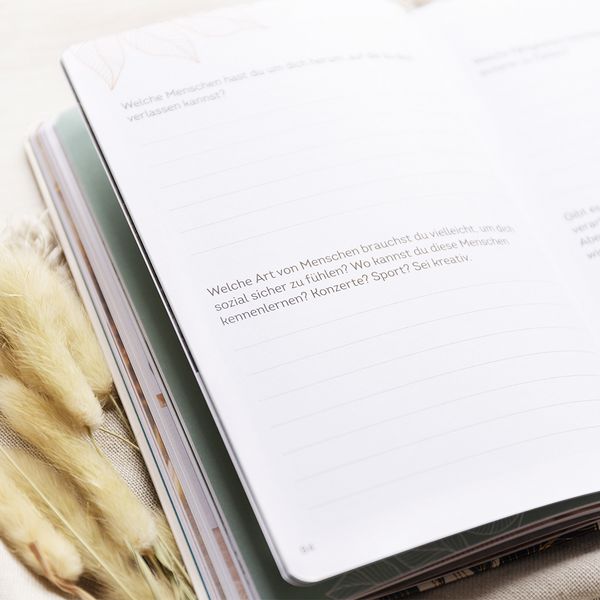 Welche Menschen hast du um dich herum, auf die du dich
verlassen kannst?
Welche Art von Menschen brauchst du vielleicht, um dich
sozial sicher zu fühlen? Wo kannst du diese Menschen
kennenlernen? Konzerte? Sport? Sei kreativ.
Gibt es